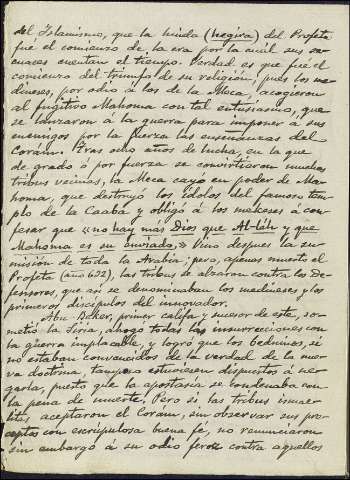 del Islamismo, que la huida (hegira) del Profeta
fué el comienzo de la era por la cual sus se-
cuaces cuentan el tiempo. Verdad es que fué el
comienzo del triunfo de su religión, pues los me-
dineses, por odio á los de la Meca, acogieron
al fugitivo Mahoma con tal entusiasmo, que
se lanzaron á la guerra para imponer a sus
enemigos por la fuerza las enseñanzas del
Corán. Tras ocho años de lucha, en la que
de grado ó por fuerza se convirtieron muchas
tribus vecinas, la Meca cayó en poder de Ma-
homa, que destruyó los ídolos del famoso tem-
plo de la Caaba y obligó á los mekeses á con-
fesar que «no hay más Dios que Al-láh y que
Mahoma es su enviado.» Vino despues la su-
misión de toda la Arabia; pero, apenas muerto el
Profeta (año 632), las tribus se alzaron contra los De-
fensores, que así se denominaban los medineses y los
primeros discípulos del innovador.
Abu Beker, primer califa y sucesor de este, so-
metió la Siria, ahogó todas las insurrecciones con
la guerra implacable, y logró que los beduinos, si
no estaban convencidos de la verdad de la nue-
va doctrina, tampoco estuviesen dispuestos á ne-
garla, puesto que la apostasía se condenaba con
la pena de muerte. Pero si las tribus ismae-
litas aceptaron el Corám, sin observar sus pre-
ceptos con escrupulosa buena fé, no renunciaron
sin embargo á su odio feroz contra aquellos